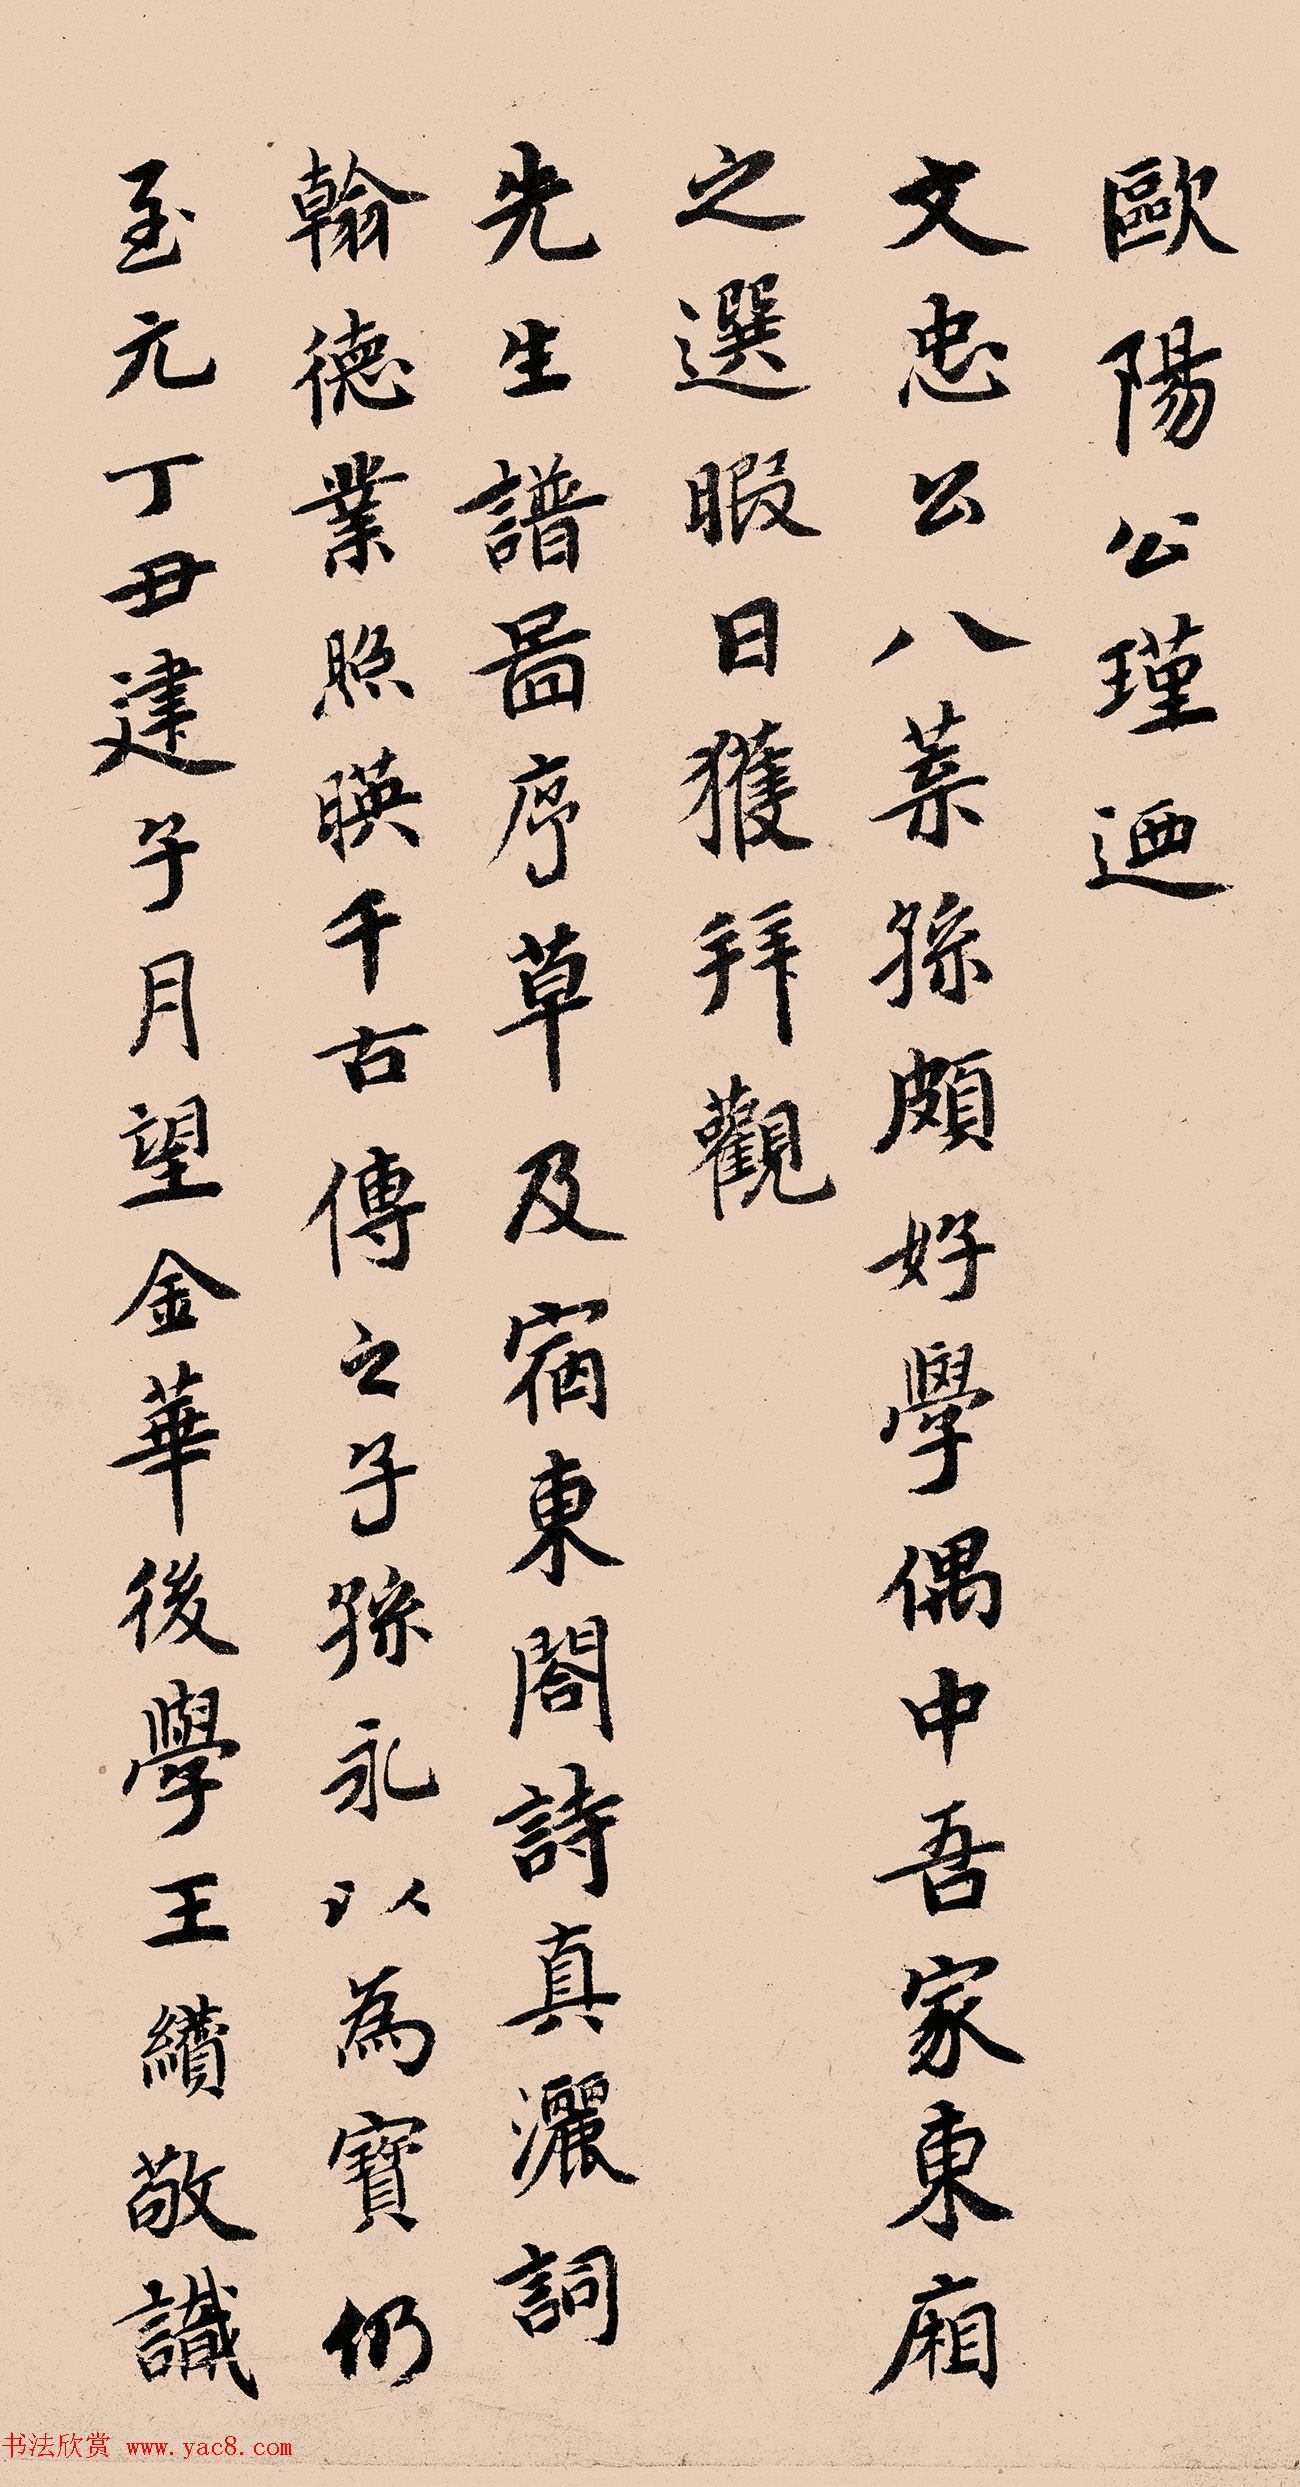 歐陽公瑾迺
文忠公八葉孫頗好學偶中吾家東廂
之選暇日獲拜觀
先生譜啚序草及宿東閤詩真灑詞
翰德業照暎千古傳之子孫永以為寶仍
至元丁丑建子月望金華後學王績敬識
书法欣赏 www.yac8.com